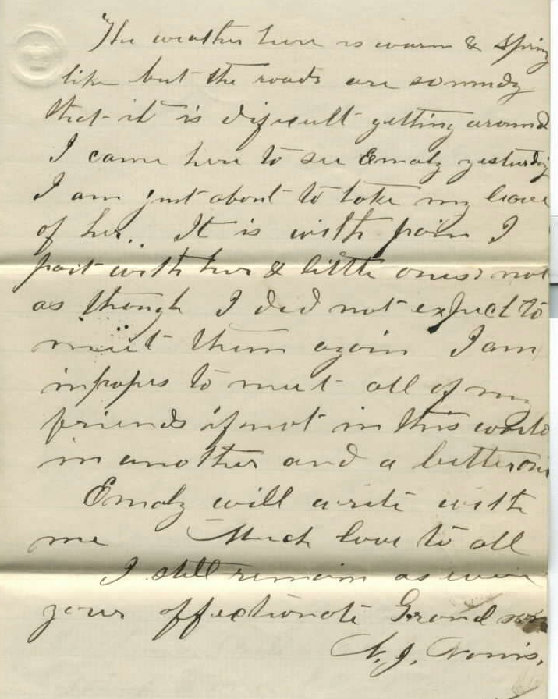 The weather here is warm & spring
like but the roads are so muddy
that it is dificult getting around
I came here to see Emaly yesterday
I am just about to take my leave
of her. It is with pain I
part with her & little ones not
as though I did not expect to
meet them again I am
in hopes to meet all of my
friends if not in this world
in another and a better one
Emaly will write with
me Much love to all
I still remain as ever
your affectionate Grand son
J.